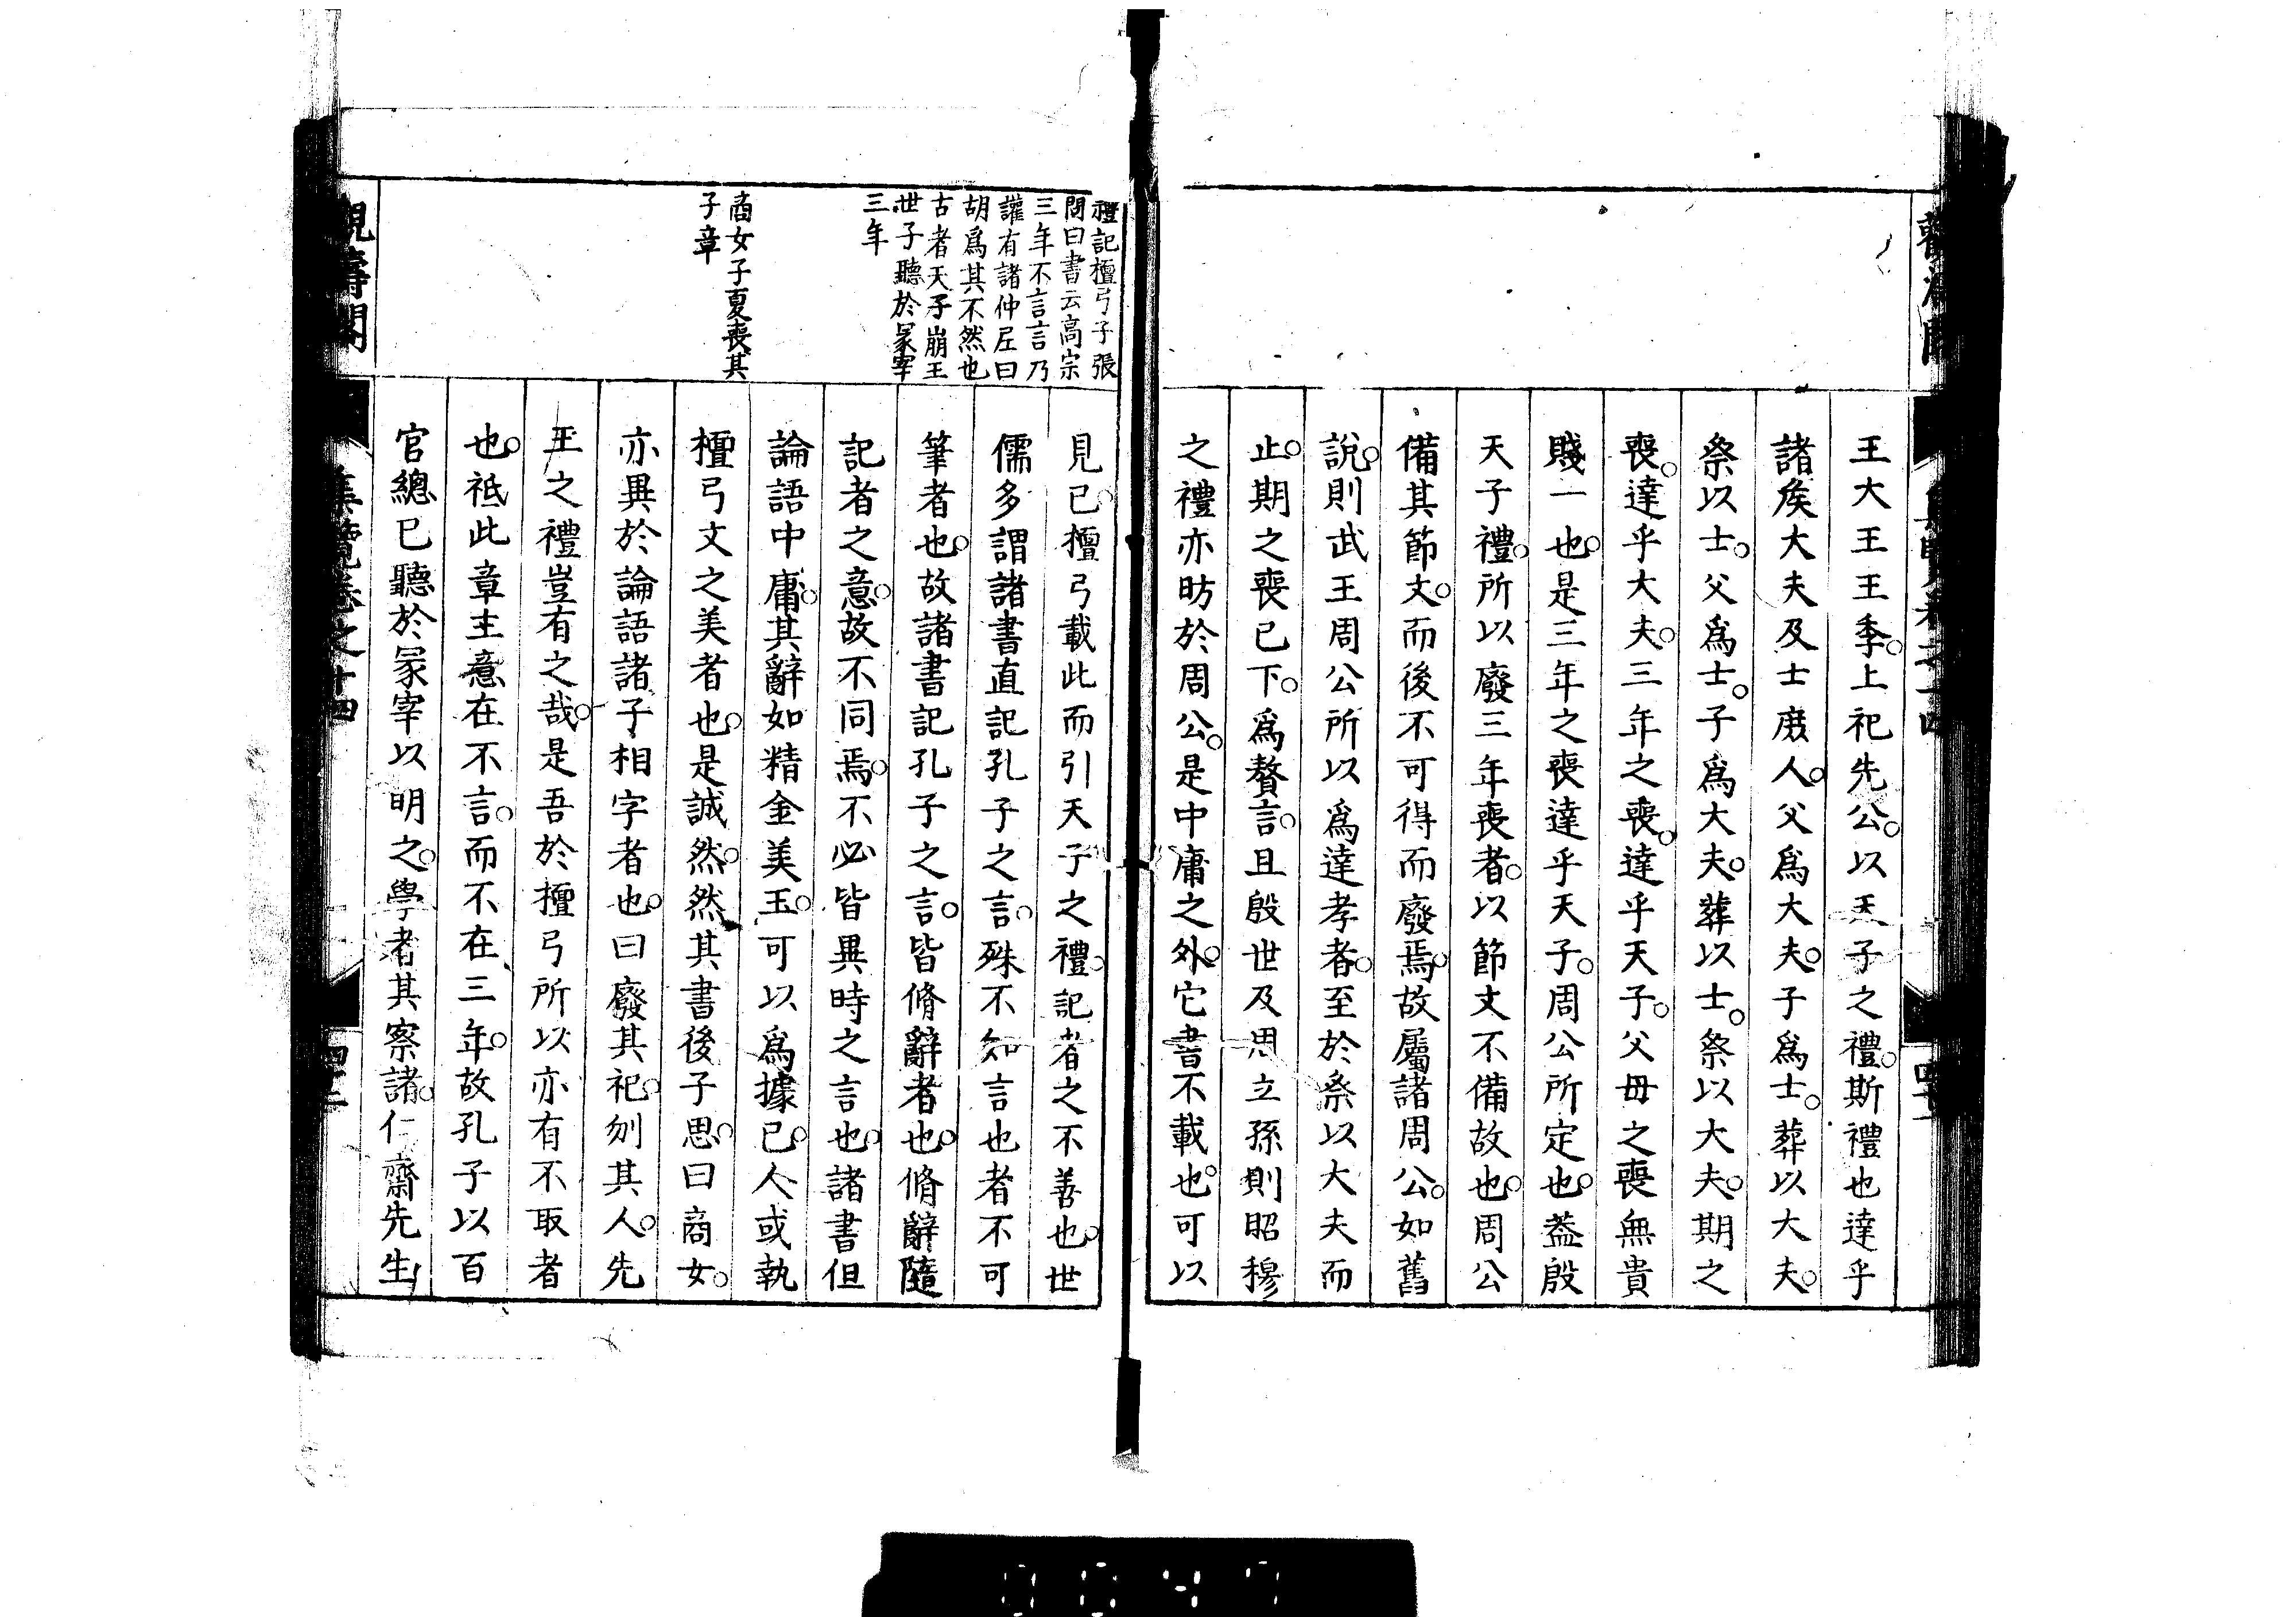 王大王王季。上祀先公。以天子之禮。斯禮也達乎
諸矦大夫及士庻人。父爲大夫。子爲士。葬以大夫。
祭以士。父爲士。子爲大夫。葬以士。祭以大夫。期之
喪。達乎大夫。三年之喪。達乎天子。父母之喪無貴
賤一也。是三年之喪達乎天子。周公所定也。葢殷
天子禮。所以廢三年喪者。以節文不備故也。周公
備其節文。而後不可得而廢焉。故屬諸周公。如舊
說。則武王周公所以爲達孝者。至於祭以大夫而
止。期之喪已下。爲贅言。且殷世及思立孫則昭穆
之禮亦昉於周公。是中庸之外。它書不載也。可以
禮記檀弓子張
問曰書云高宗
三年不言言乃
讙有諸仲尼曰
胡爲其不然也
古者天子崩王
世子聽於冢宰
三年
商女子夏喪其
子章
見已。檀弓載此而引天子之禮。記者之不善也。世
儒多謂諸書直記孔子之言。殊不知言也者不可
筆者也。故諸書記孔子之言。皆脩辭者也。脩辭隨
記者之意。故不同焉。不必皆異時之言也。諸書但
論語中庸。其辭如精金美玉。可以爲據已。人或執
檀弓文之美者也。是誠然。然其書後子思。曰商女。
亦異於論語諸子相字者也。曰廢其祀。刎其人。先
王之禮豈有之哉。是吾於檀弓所以亦有不取者
也。祇此章主意在不言。而不在三年。故孔子以百
官總已聽於冢宰以明之。學者其察諸。仁齋先生
觀濤閣
集覽卷之十四